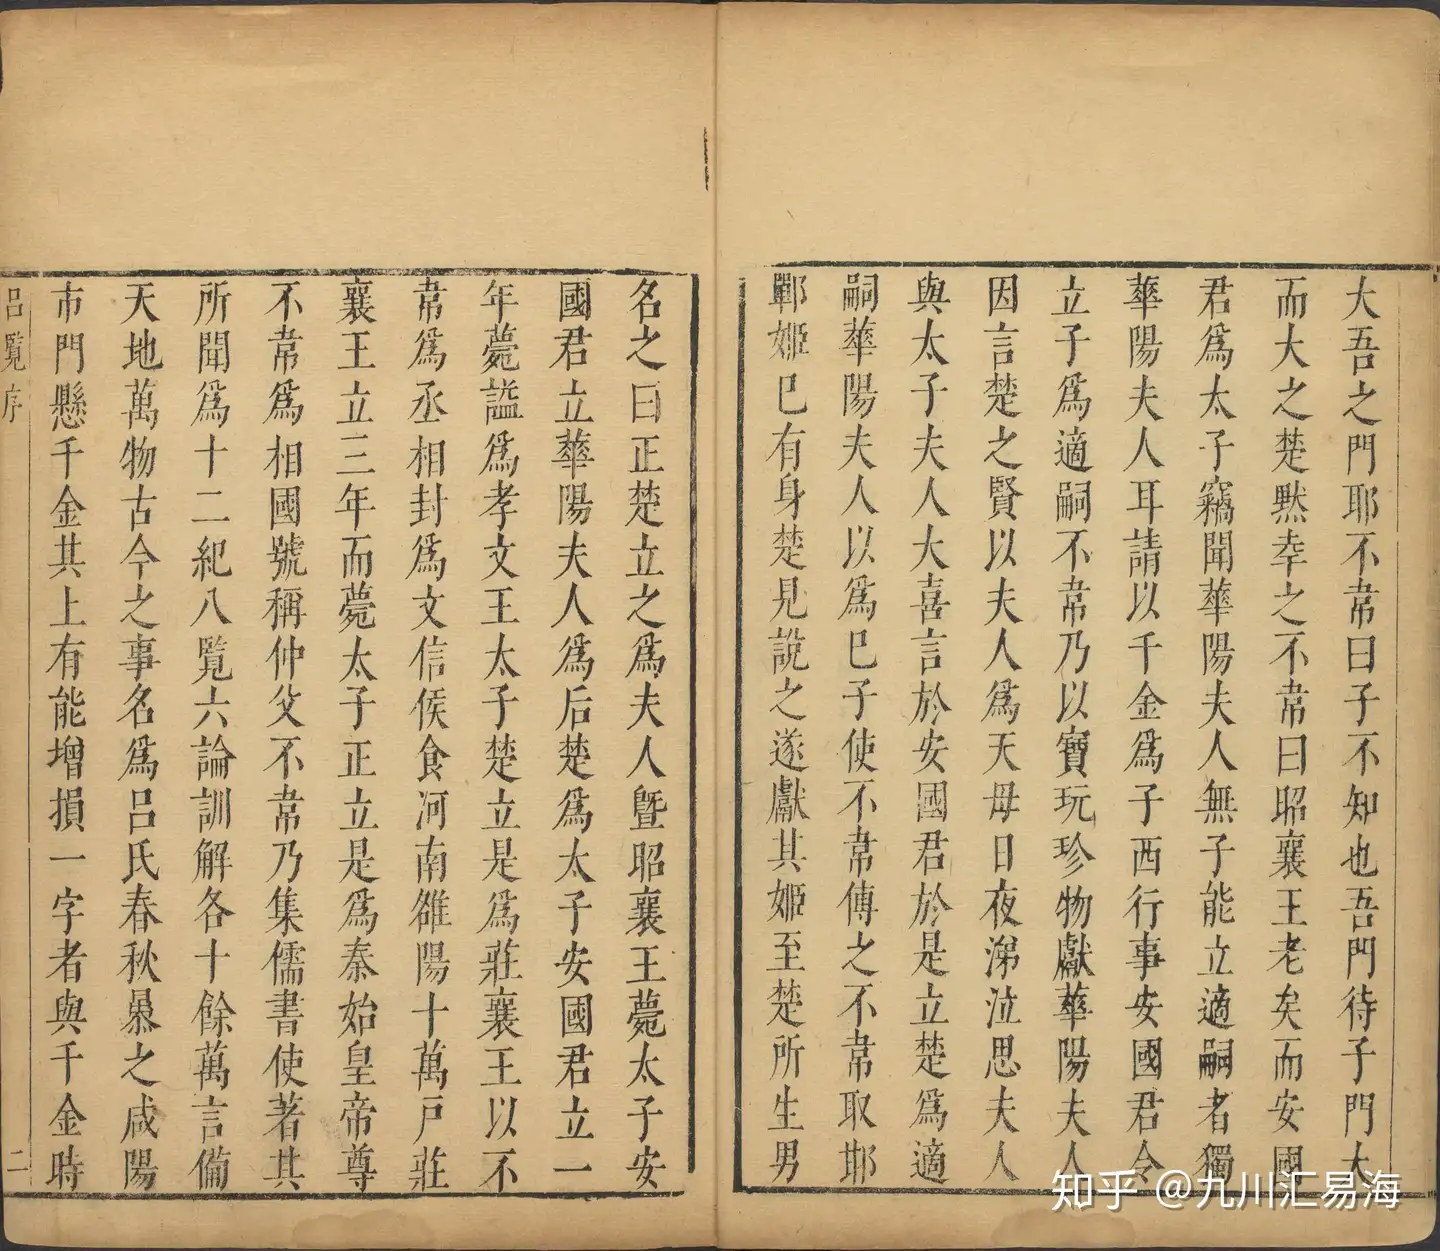 大吾之門耶不韋曰子不知也吾門待子門大
而大之楚黙幸之不韋曰昭襄王老矣而安國
君爲太子竊聞華陽夫人無子能立適嗣者獨
華陽夫人耳請以千金爲子西行事安國君令
立子爲適嗣不韋乃以寶玩珍物獻華陽夫人
因言楚之賢以夫人爲天母日夜涕泣思夫人
與太子夫人大喜言於安國君於是立楚爲適
嗣華陽夫人以爲巳子使不韋傅之不韋取邯
鄲姬巳有身楚見說之遂獻其姬至楚所生男
名之曰正楚立之爲夫人暨昭襄王薨太子安
國君立華陽夫人爲后楚爲太子安國君立一
年薨謚爲孝文王太子楚立是爲莊襄王以不
韋爲丞相封爲文信侯食河南雒陽十萬戸莊
襄王立三年而薨太子正立是爲秦始皇帝尊
不韋爲相國號稱仲父不韋乃集儒書使著其
所聞爲十二紀八覽六論訓解各十餘萬言備
天地萬物古今之事名爲呂氏春秋㬥之咸陽
市門懸千金其上有能增損一字者與千金時
呂覽序
二
知乎 @九川汇易海